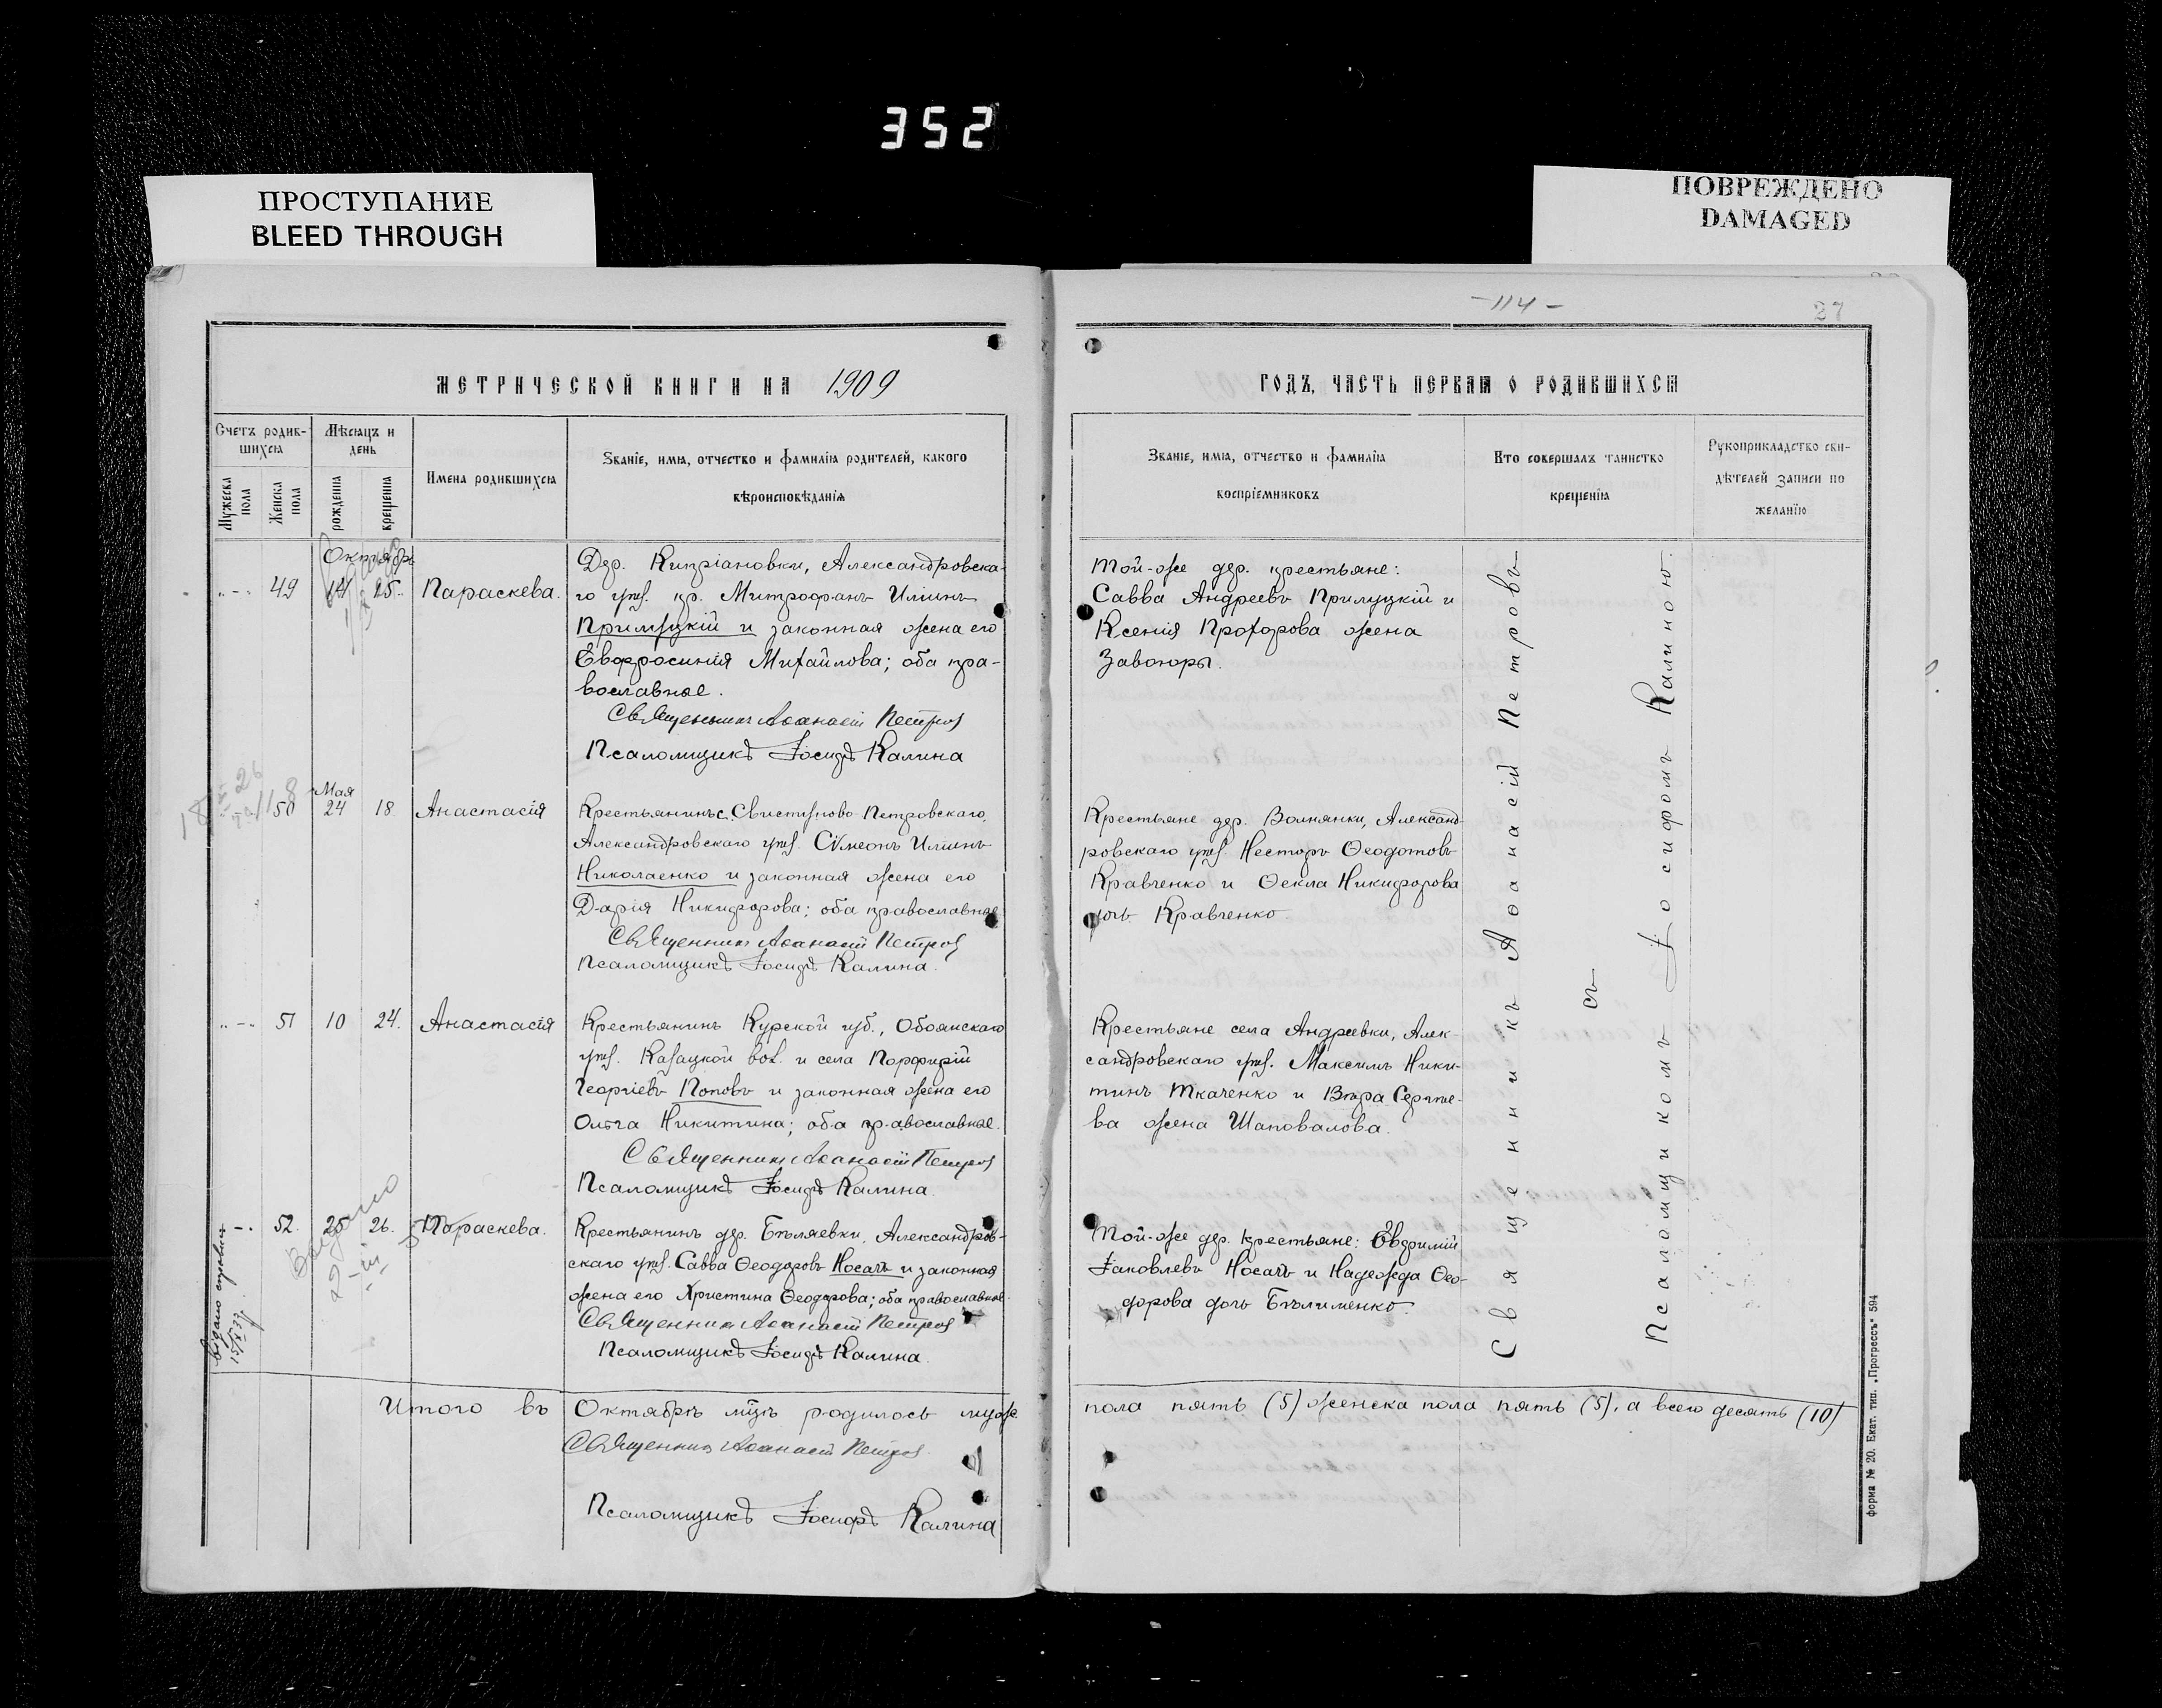 352
ПРОСТУПАНИЕ
BLEED THROUGH
ПОВРЕЖДЕНО
DAMAGED
-114-
27
МЕТРИЧЕСКОЙ КНИГИ НА 1909
ГОДЪ, ЧАСТЬ ПЕРВАЯ О РОДИВШИХСЯ
Счетъ родив-
шихся
Мѣсяцъ и
день
Мужеска
пола
Женска
пола
рожденія
крещенія
Имена родившихся
Званіе, имя, отчество и фамилія родителей, какого
вѣроисповѣданія
Званіе, имя, отчество и фамилія
воспріемниковъ
Кто совершалъ таинство
крещенія
Рукоприкладство сви-
дѣтелей записи по
желанію
Октябрь
49 14 25 Параскева.
Дер. Кипріановки, Александровска-
го уѣз. кр. Митрофанъ Ильинъ
Прилуцкій и законная жена его
Евфросинія Михайлова; оба пра-
вославные.
Священникъ Аѳанасій Петровъ
Псаломщикъ Іосифъ Калина
Той-же дер. крестьяне:
Савва Андреевъ Прилуцкій и
Ксенія Прохорова жена
Завгоры.
Мая
50 24 18. Анастасія
Крестьянинъ с. Свистуново-Петровскаго,
Александровскаго уѣз. Сѵмеонъ Ильинъ
Николаенко и законная жена его
Дарія Никифорова; оба православные
Священникъ Аѳанасій Петровъ
Псаломщикъ Іосифъ Калина.
Крестьяне дер. Волнянки, Александ-
ровскаго уѣз. Несторъ Ѳеодотовъ
Кравченко и Ѳекла Никифорова
дочь Кравченко.
51 10 24. Анастасія
Крестьянинъ Курской губ., Обоянскаго
уѣз. Казацкой вол. и села Порфирій
Георгіевъ Поповъ и законная жена его
Ольга Никитина; оба православные.
Священникъ Аѳанасій Петровъ
Псаломщикъ Іосифъ Калина.
Крестьяне села Андреевки, Алек-
сандровскаго уѣз. Максимъ Ники-
тинъ Ткаченко и Вѣра Сергѣе-
ва жена Шаповалова.
52. 25 26. Параскева.
Крестьянинъ дер. Бѣляевки, Александров-
скаго уѣз. Савва Ѳеодоровъ Носачъ и законная
жена его Христина Ѳеодорова; оба православные.
Священникъ Аѳанасій Петровъ
Псаломщикъ Іосифъ Калина.
Той-же дер. крестьяне: Евфимій
Іаковлевъ Носачъ и Надежда Ѳео-
дорова дочь Бѣлименко.
Священникъ Аѳанасій Петровъ
съ
Псаломщикомъ Іосифомъ Калиною.
Итого въ Октябрѣ мцѣ родилось муж.
пола пять (5) женска пола пять (5), а всего десять (10)
Священникъ Аѳанасій Петровъ
Псаломщикъ Іосифъ Калина
форма № 20. Екат. тип. „Прогрессъ“ 594